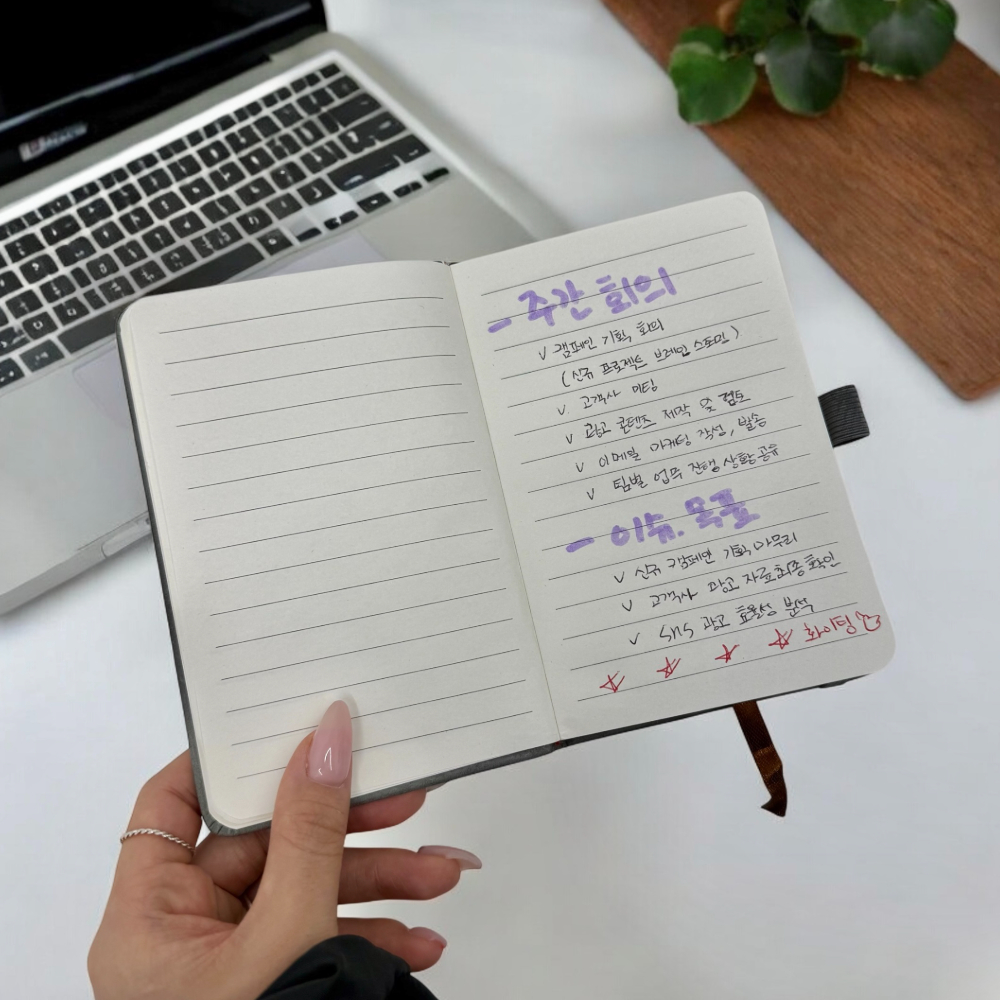 - 주간 회의
v 캠페인 기획 회의
(신규 프로젝트 브레인 스토밍)
v. 고객사 미팅
v 광고 콘텐츠 제작 및 컴토
v 이메일 마케팅 작성, 발송
v 팀별 업무 진행 상황 공유
- 이슈. 목표
v 신규 캠페인 기획 마무리
v 고객사 광고 자료 최종 확인
v SNS 광고 효율성 분석
☆ ☆ ☆ ☆ 화이팅♡